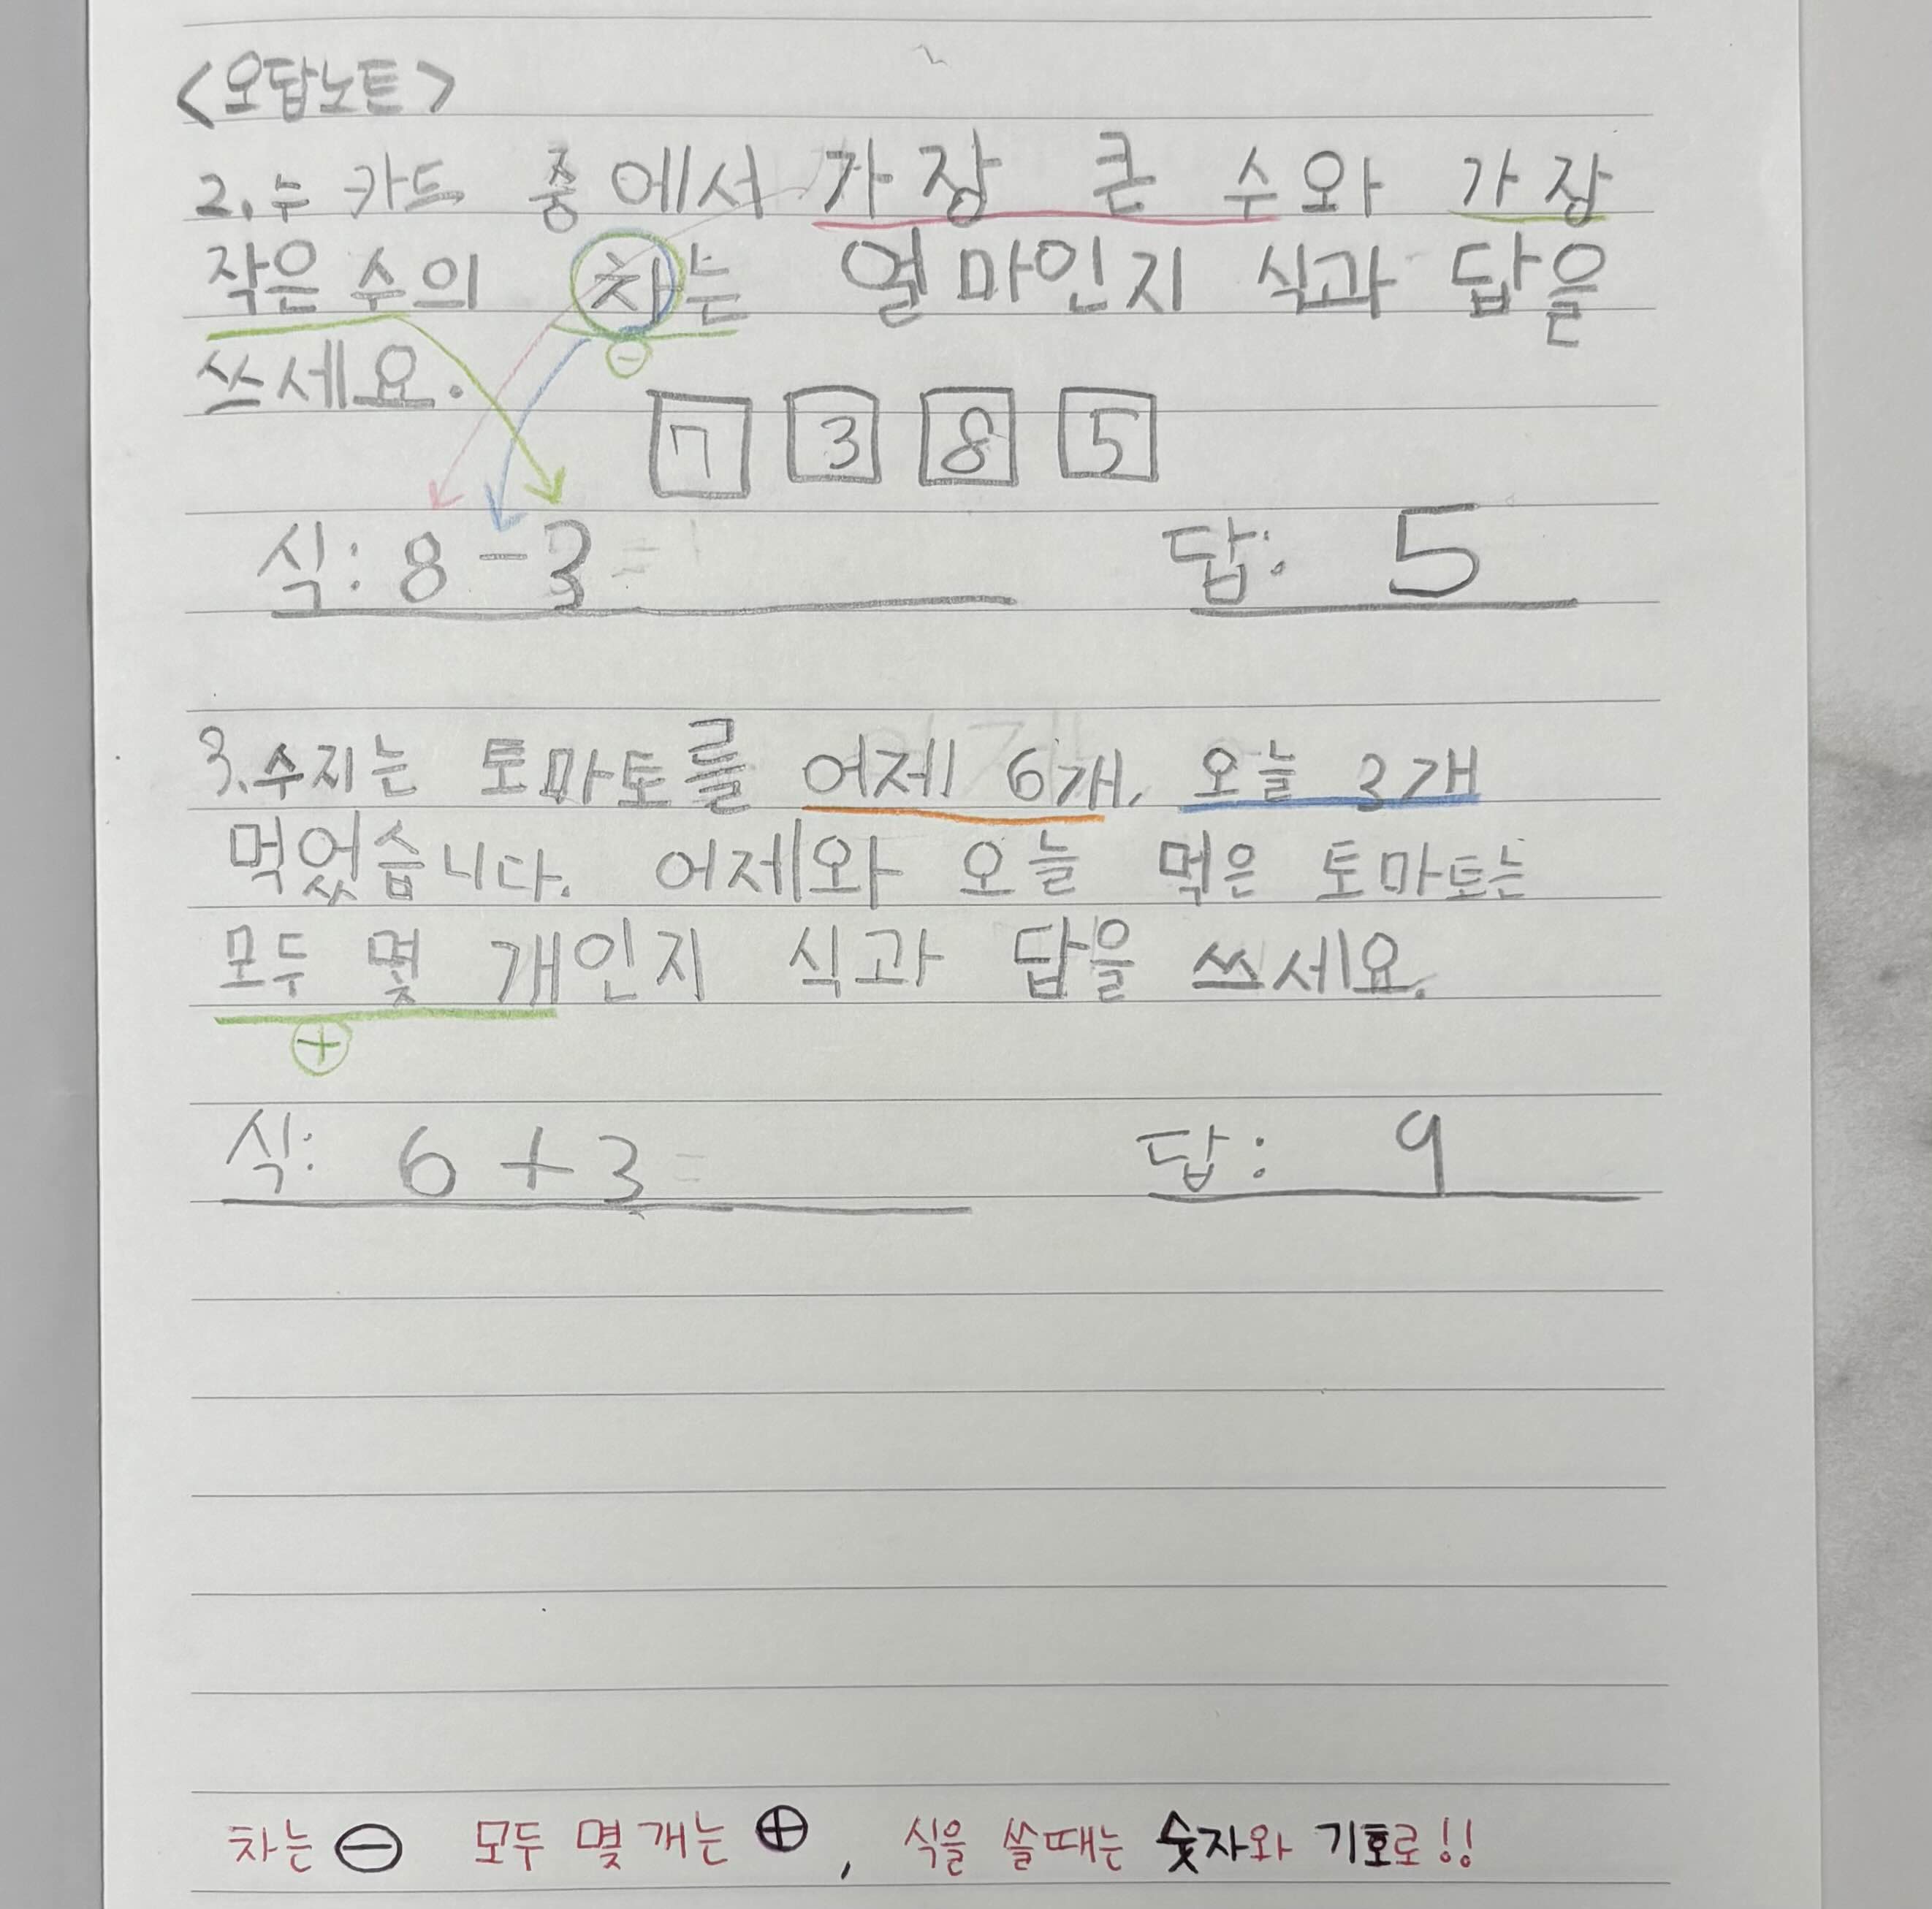 <오답노트>
2. 수 카드 중에서 가장 큰 수와 가장
작은 수의 차는 얼마인지 식과 답을
쓰세요.
⊖
7 3 8 5
식: 8-3= 답: 5
3. 수지는 토마토를 어제 6개, 오늘 3개
먹었습니다. 어제와 오늘 먹은 토마토는
모두 몇 개인지 식과 답을 쓰세요.
⊕
식: 6+3= 답: 9
차는 ⊖ 모두 몇 개는 ⊕, 식을 쓸때는 숫자와 기호로!!